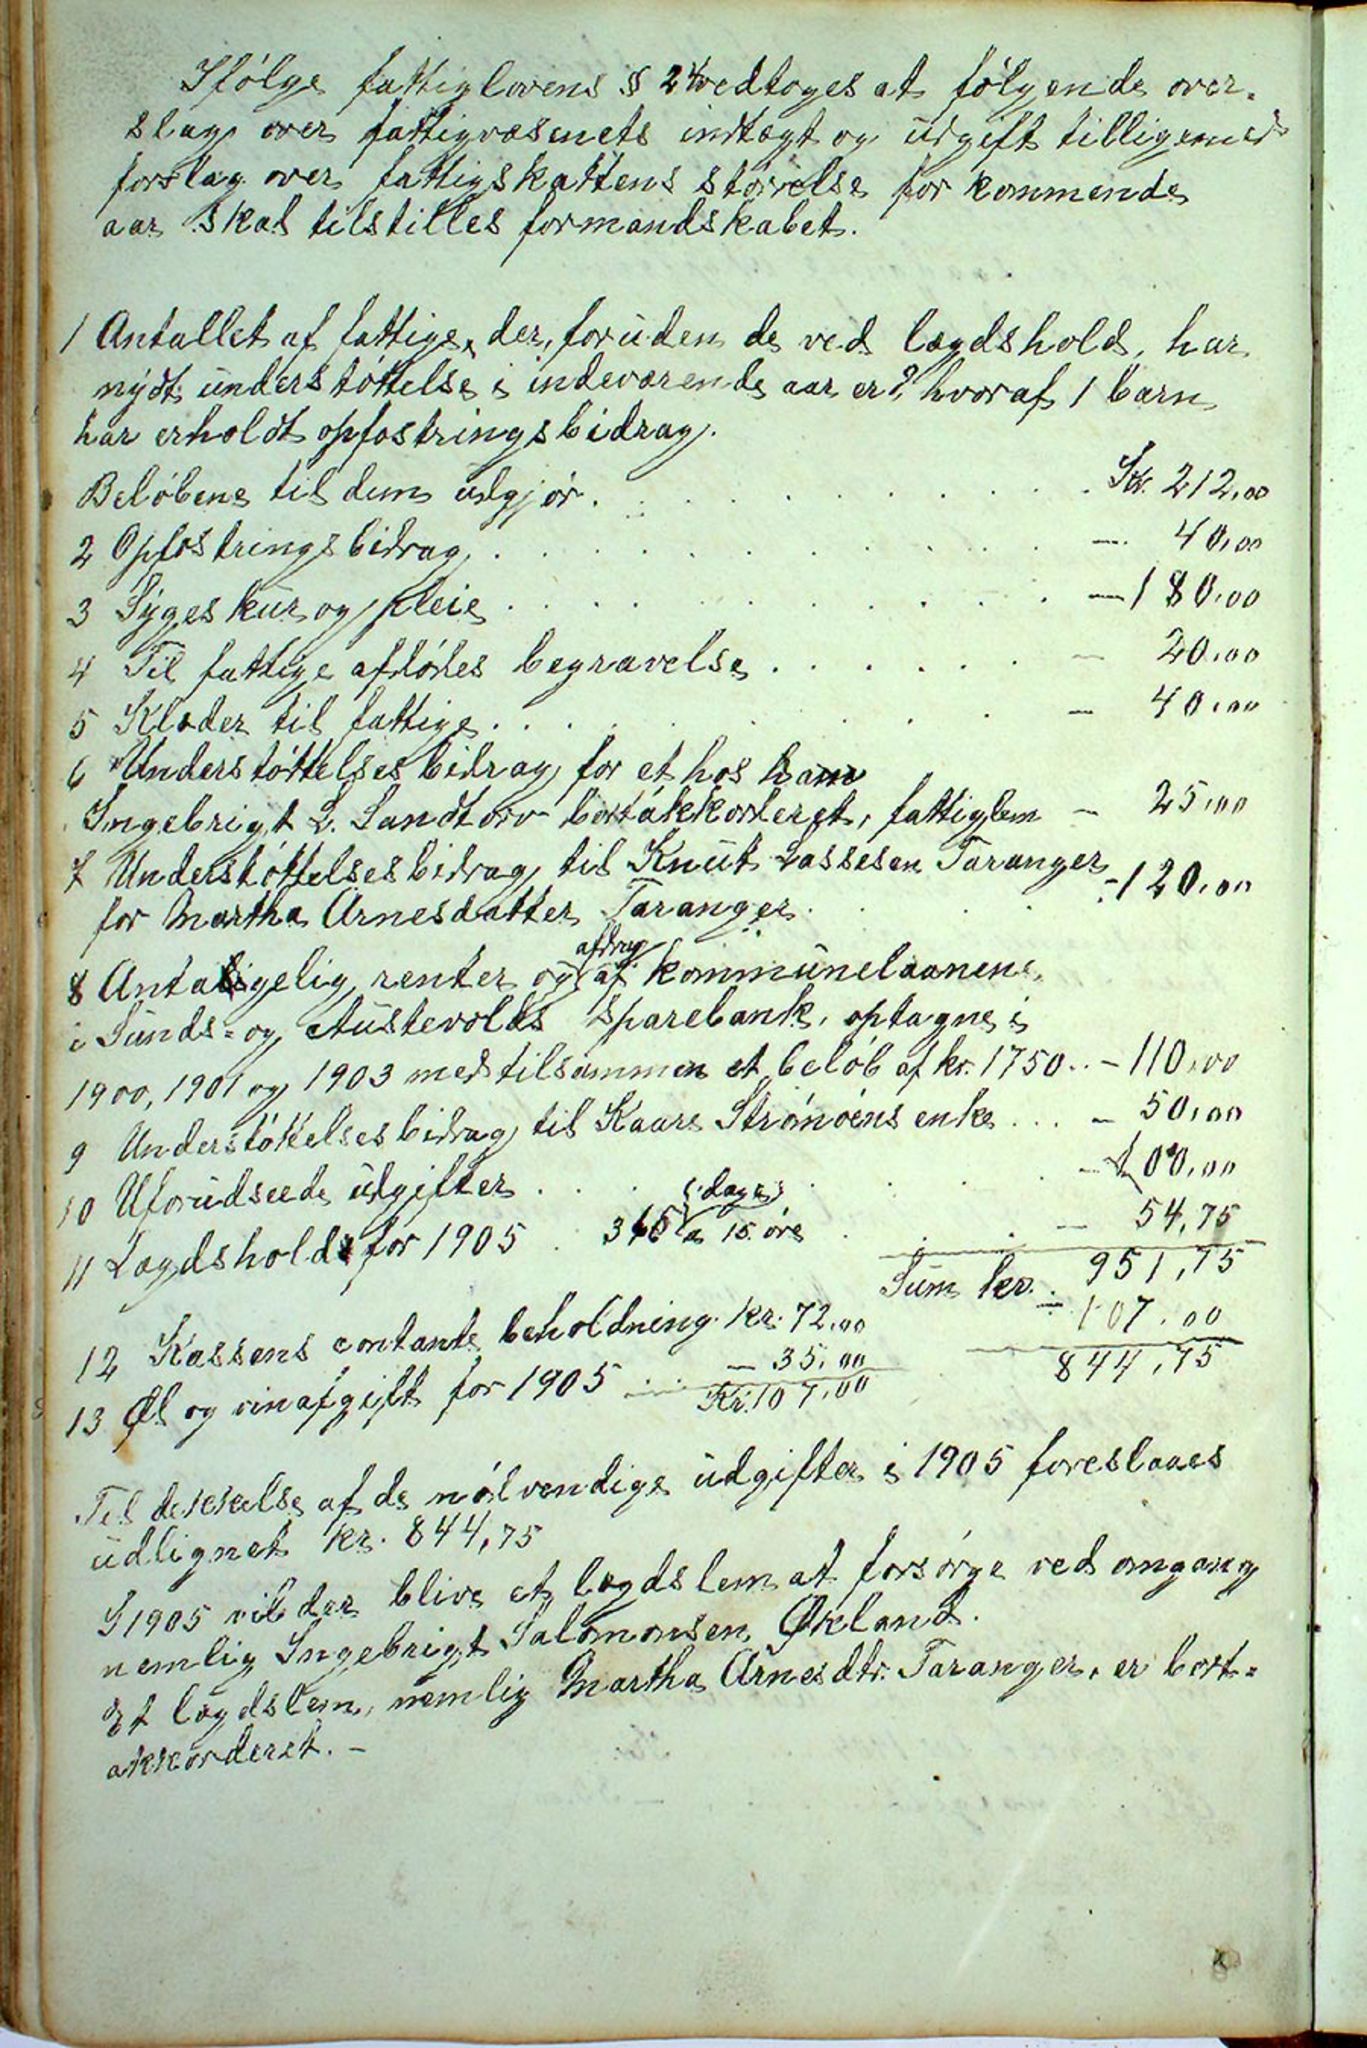 Ifølge fattiglovens § 24 vedtoges at følgende over-
slag over fattigvæsenets indtægt og udgift tilligemed
forslag over fattigskattens størrelse for kommende
aar skal tilstilles formandskabet.
1 Antallet af fattige, der, foruden de ved lægdshold, har
nydt understøttelse i indeværende aar er 9, hvoraf 1 barn
har erholdt opfostringsbidrag.
Beløbene til dem udgjør . . . . . . Kr. 212,00
2 Opfostringsbidrag . . . . . . — 40,00
3 Sygeskur og pleie . . . . . . — 180,00
4 Til fattige afdødes begravelse . . . . . . — 20,00
5 Klæder til fattige . . . . . . — 40,00
6 Understøttelsesbidrag for et hos ham
Ingebrigt L. Sandtorv bortakkorderet, fattiglem — 25,00
7 Understøttelsesbidrag til Knut Lassesen Taranger
for Martha Arnesdatter Taranger . . . — 120,00
8 Antagelig renter og afdrag af kommunelaanene
i Sunds- og Austevolds sparebank, optagne i
1900, 1901 og 1903 med tilsammen et beløb af kr. 1750 .. — 110,00
9 Understøttelsesbidrag til Kaare Strømøens enke ... — 50,00
10 Uforudseede udgifter . . . . . . — 100,00
11 Lægdshold for 1905 . 365 (dage) a 15 øre . . . — 54,75
Sum kr. 951,75
12 Kassens contante beholdning kr. 72,00 — 107,00
13 Øl og vinafgift for 1905 ... — 35,00 844,75
Kr. 107,00
Til dekkelse af de nødvendige udgifter i 1905 foreslaaes
udlignet kr. 844,75
I 1905 vil der blive et lægdslem at forsørge ved omgang
nemlig Ingebrigt Salomonsen Økland.
Et lægdslem, nemlig Martha Arnesdtr. Taranger, er bort-
akkorderet. —